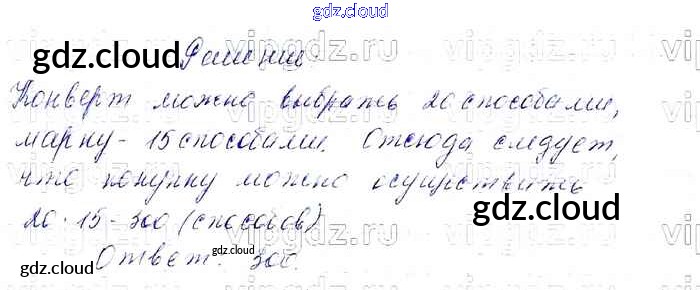 gdz.cloud
gdz.cloud
vipgdz.ru
Решение
Конверт можно выбрать 20 способами,
марку - 15 способами. Отсюда следует,
что покупку можно осуществить
20 · 15 - 300 (способов)
gdz.cloud
gdz.cloud
Ответ: 300.
gdz.cloud